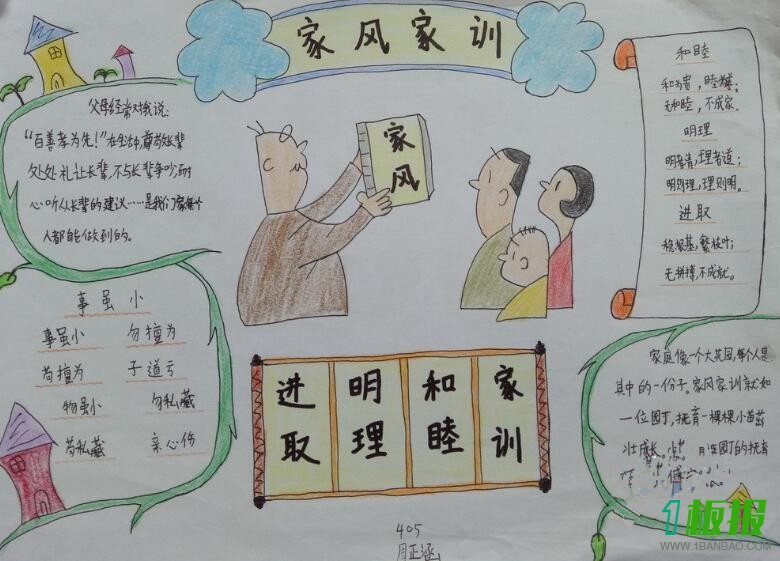 家风家训
父母经常对我说:
"百善孝为先!"在生活中,尊敬长辈
处处礼让长辈,不与长辈争吵,耐
心听从长辈的建议……是我们家每个
人都能做到的。
家风
和睦
和为贵,睦为
无和睦,不成家.
明理
明者清,理者道;
明则理,理则明。
进取
稳根基,繁枝叶;
无拼搏,不成就。
事虽小
事虽小 勿擅为
苟擅为 子道亏
物虽小 勿私藏
苟私藏 亲心伤
进取 明理 和睦 家训
家庭像一个大花园,每个人是
其中的一份子。家风家训就如
一位园丁,抚育一棵棵小苗茁
壮成长。 园丁的抚育
405
周正涵
1板报
WWW.1BANBAO.COM